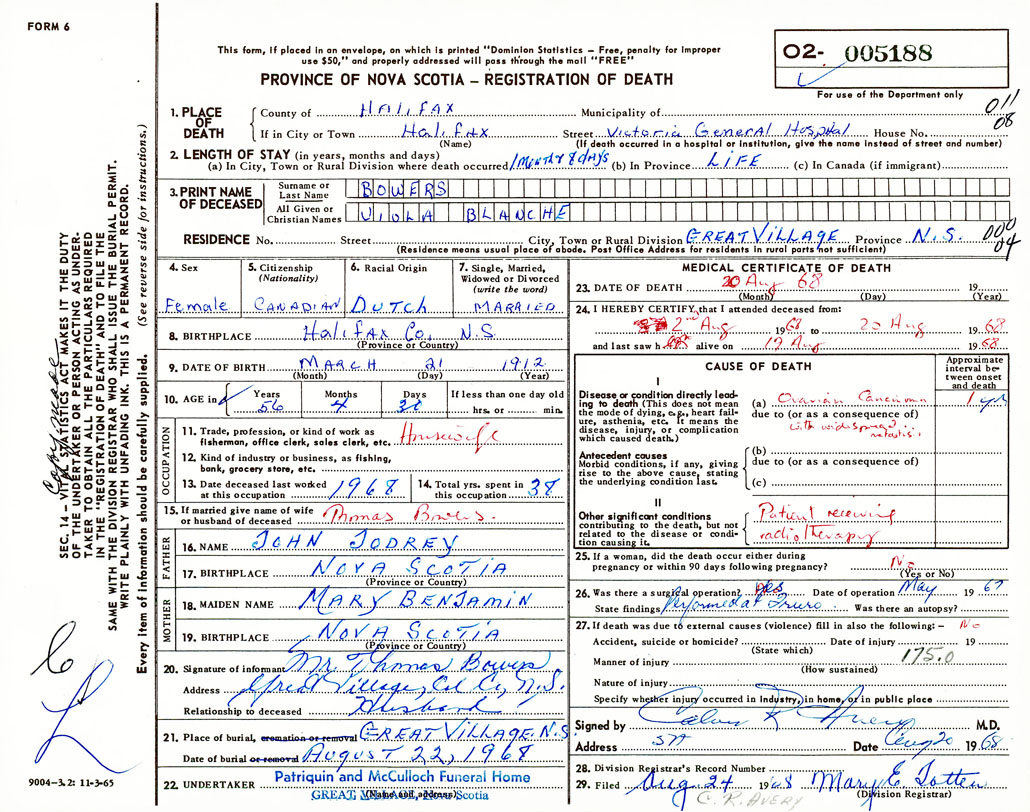 FORM 6
This form, if placed in an envelope, on which is printed "Dominion Statistics – Free, penalty for improper
use $50," and properly addressed will pass through the mail "FREE"
PROVINCE OF NOVA SCOTIA – REGISTRATION OF DEATH
O2- 005188
For use of the Department only
011
08
1. PLACE OF DEATH
County of Halifax Municipality of
If in City or Town Halifax Street Victoria General Hospital House No.
(Name) (If death occurred in a hospital or institution, give the name instead of street and number)
2. LENGTH OF STAY (in years, months and days)
(a) In City, Town or Rural Division where death occurred 1 Month 8 days (b) In Province LIFE (c) In Canada (if immigrant)
3. PRINT NAME OF DECEASED
Surname or Last Name BOWERS
All Given or Christian Names VIOLA BLANCHE
RESIDENCE No. Street City, Town or Rural Division GREAT VILLAGE Province N.S.
000
04
(Residence means usual place of abode. Post Office Address for residents in rural parts not sufficient)
4. Sex
Female
5. Citizenship
(Nationality)
CANADIAN
6. Racial Origin
DUTCH
7. Single, Married,
Widowed or Divorced
(write the word)
MARRIED
8. BIRTHPLACE Halifax Co. N.S
(Province or Country)
9. DATE OF BIRTH MARCH 21 1912
(Month) (Day) (Year)
10. AGE in Years Months Days If less than one day old
56 4 30 hrs. or min.
OCCUPATION
11. Trade, profession, or kind of work as
fisherman, office clerk, sales clerk, etc. Housewife
12. Kind of industry or business, as fishing,
bank, grocery store, etc.
13. Date deceased last worked
at this occupation 1968
14. Total yrs. spent in
this occupation 38
15. If married give name of wife
or husband of deceased Thomas Bowers.
FATHER
16. NAME JOHN JODREY
17. BIRTHPLACE NOVA SCOTIA
(Province or Country)
MOTHER
18. MAIDEN NAME MARY BENJAMIN
19. BIRTHPLACE NOVA SCOTIA
(Province or Country)
20. Signature of informant Mr Thomas Bowers
Address Great Village, Col Co, N.S.
Relationship to deceased Husband
21. Place of burial, cremation or removal GREAT VILLAGE, N.S
Date of burial or removal AUGUST 22, 1968
22. UNDERTAKER Patriquin and McCulloch Funeral Home
(Name and Address)
GREAT VILLAGE, Nova Scotia
MEDICAL CERTIFICATE OF DEATH
23. DATE OF DEATH 20 Aug 68 19
(Month) (Day) (Year)
24. I HEREBY CERTIFY, that I attended deceased from:
2nd Aug 1968 to 20 Aug 1968
and last saw h alive on 19 Aug 1968
CAUSE OF DEATH
Approximate
interval be-
tween onset
and death
I
Disease or condition directly lead-
ing to death (This does not mean
the mode of dying, e.g., heart fail-
ure, asthenia, etc. It means the
disease, injury, or complication
which caused death.)
(a) Ovarian Carcinoma 1 yr
due to (or as a consequence of)
with widespread
Antecedent causes
Morbid conditions, if any, giving
rise to the above cause, stating
the underlying condition last.
(b)
due to (or as a consequence of)
(c)
II
Other significant conditions
contributing to the death, but not
related to the disease or condi-
tion causing it.
Patient receiving
radiotherapy
25. If a woman, did the death occur either during
pregnancy or within 90 days following pregnancy? No
(Yes or No)
26. Was there a surgical operation? yes Date of operation May 1967
State findings Performed at Truro Was there an autopsy?
27. If death was due to external causes (violence) fill in also the following: – No
Accident, suicide or homicide? Date of injury 19
(State which)
175.0
Manner of injury
(How sustained)
Nature of injury
Specify whether injury occurred in Industry, in home, or in public place
Signed by Calvin R Avery M.D.
Address Date Aug 20 1968
28. Division Registrar's Record Number
29. Filed Aug. 24 1968 Mary E. Totten
(Division Registrar)
C. R. AVERY
SEC. 14 – VITAL STATISTICS ACT MAKES IT THE DUTY
OF THE UNDERTAKER OR PERSON ACTING AS UNDER-
TAKER TO OBTAIN ALL THE PARTICULARS REQUIRED
IN THE "REGISTRATION OF DEATH" AND TO FILE THE
SAME WITH THE DIVISION REGISTRAR WHO SHALL ISSUE THE BURIAL PERMIT.
WRITE PLAINLY WITH UNFADING INK. THIS IS A PERMANENT RECORD.
Every item of information should be carefully supplied. (See reverse side for instructions.)
9004–3.2: 11-3-65